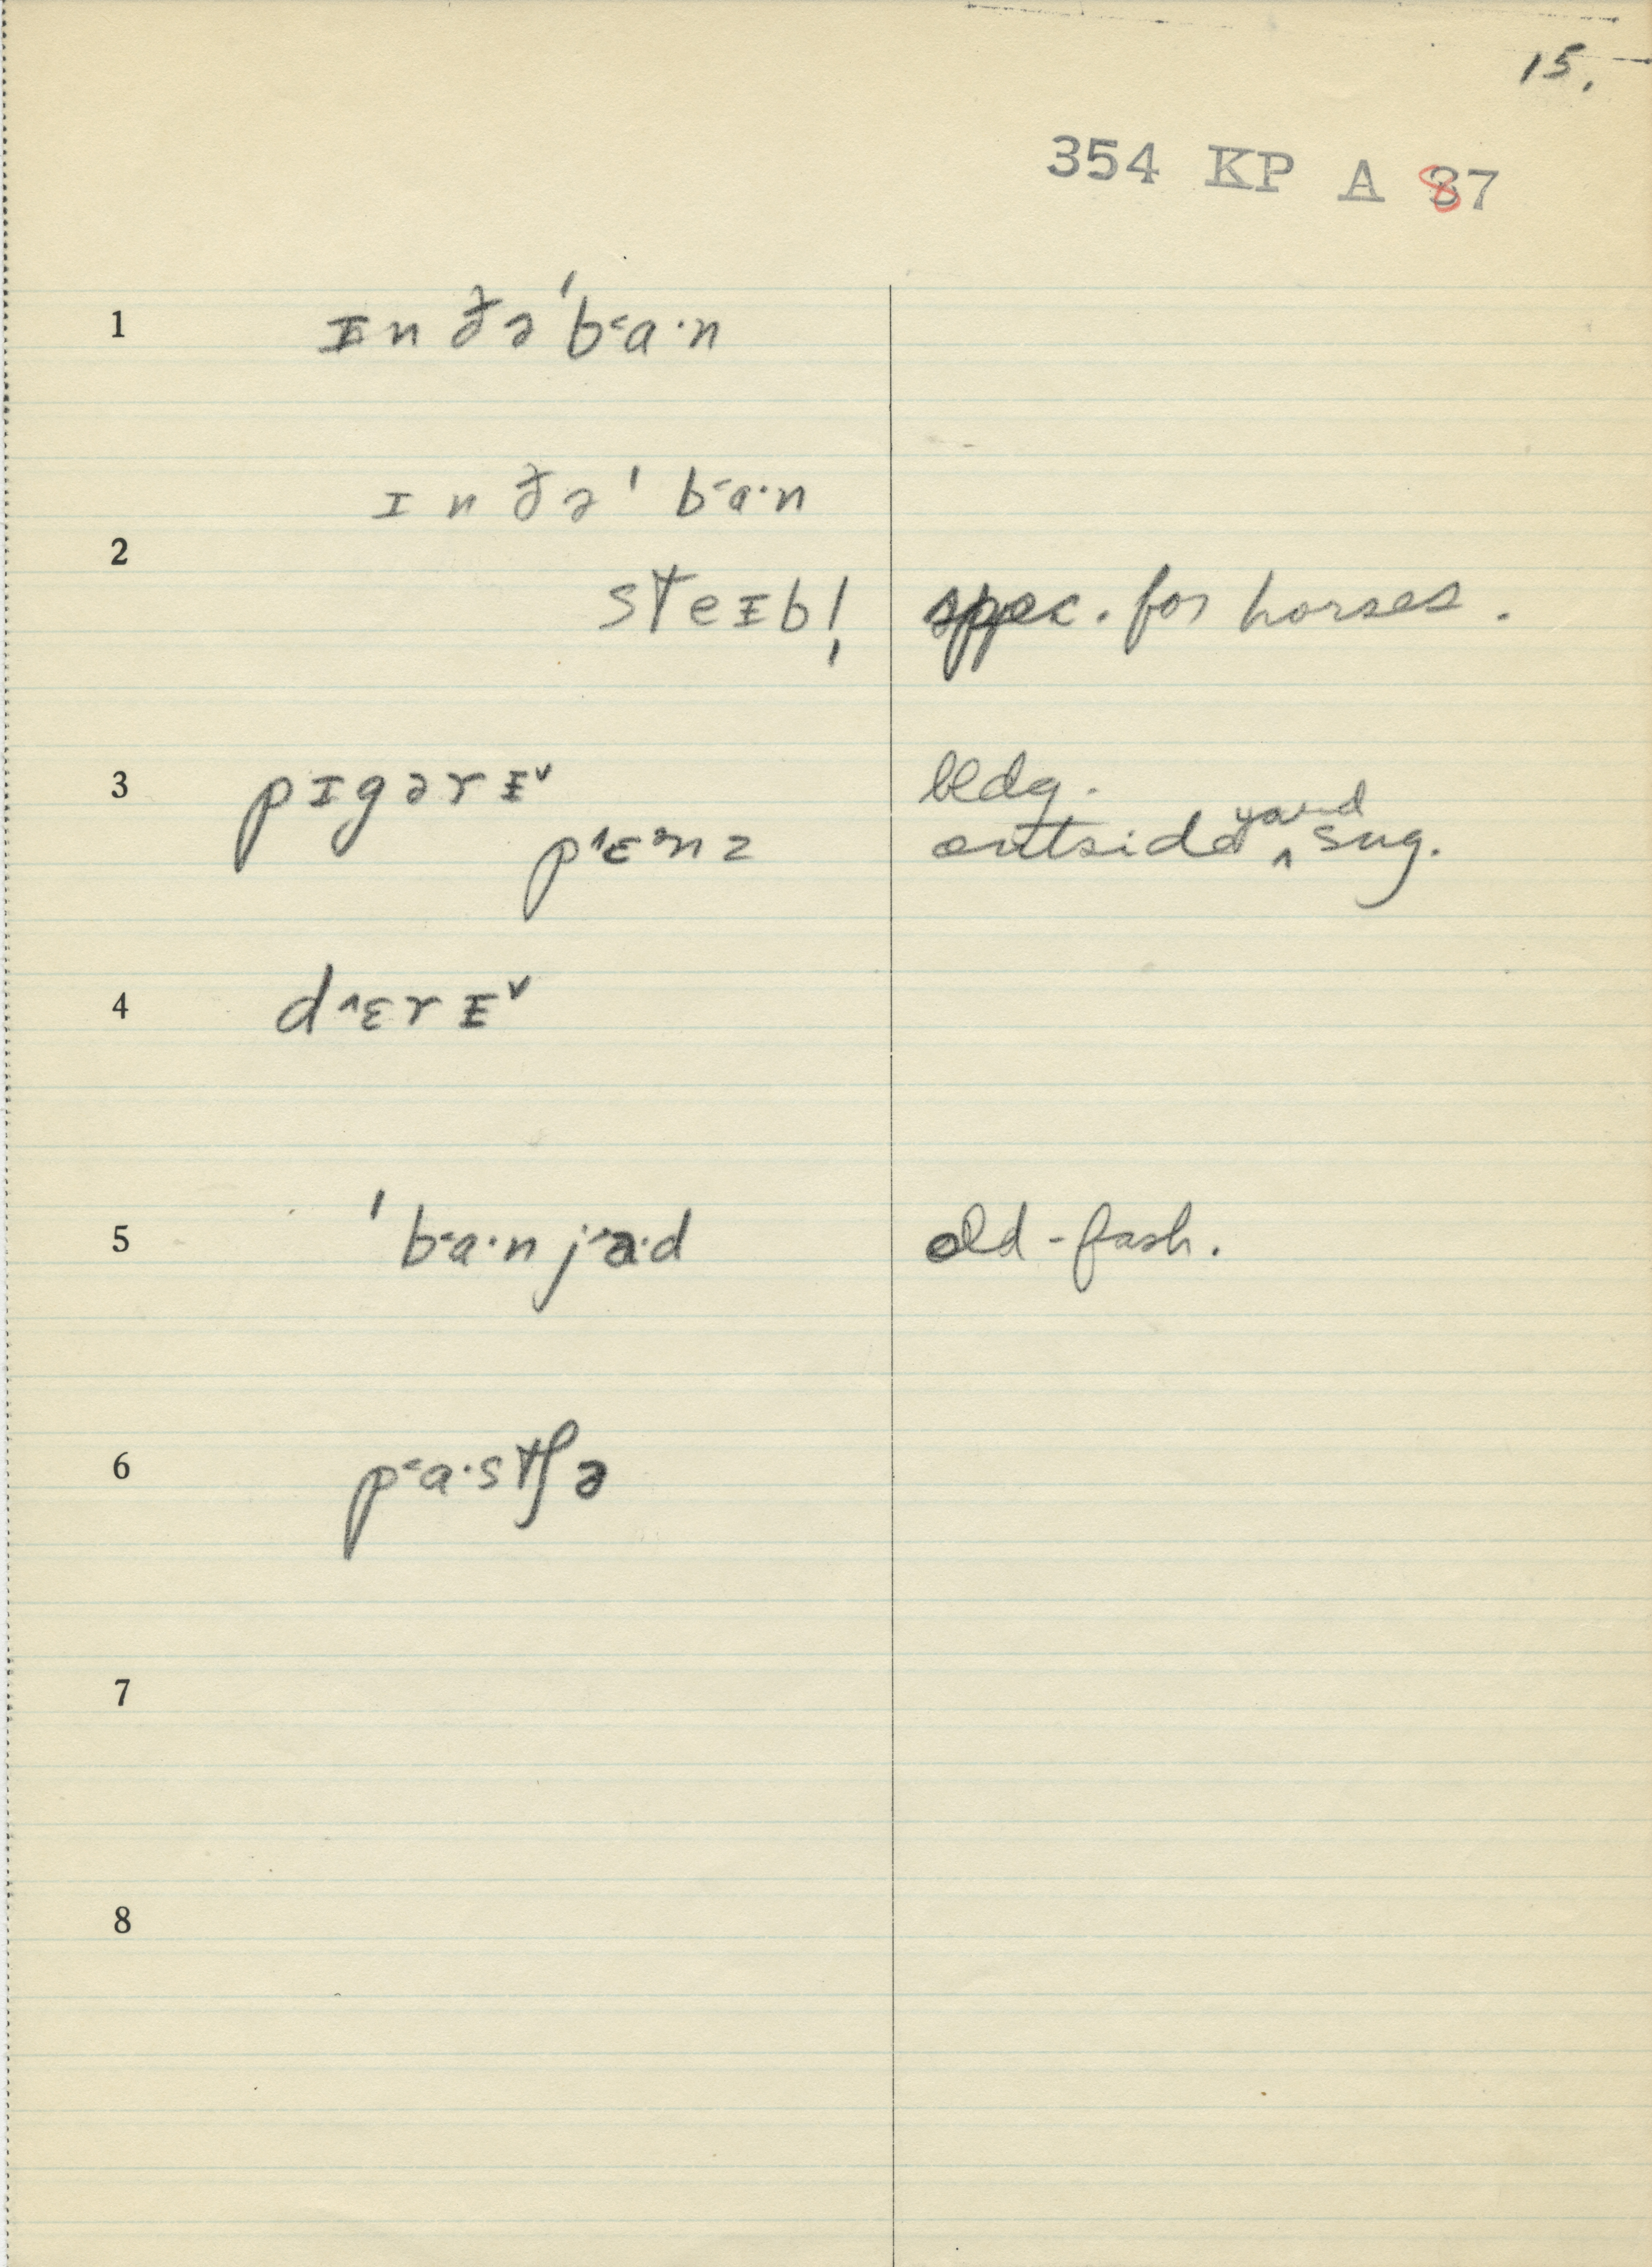 15.
354 KP A 87
1 ɪn ðə ˈb˂a·n
2 ɪn ðə ˈb˂a·n
steɪbl̩ spec. for horses.
3 pɪgərɪ˅ bldg.
p˄ɛnz outside yard sug.
4 d˄ɛrɪ˅
5 ˈb˂a·n j˂a·d old-fash.
6 p˂a·stʃə
7
8